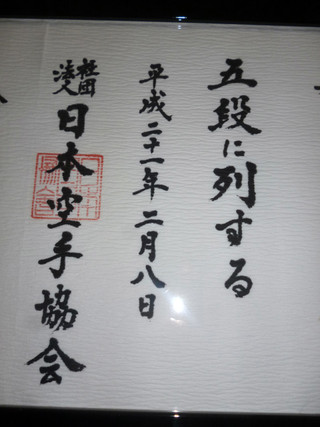 五段に列する
平成二十一年二月八日
社団法人日本空手協会